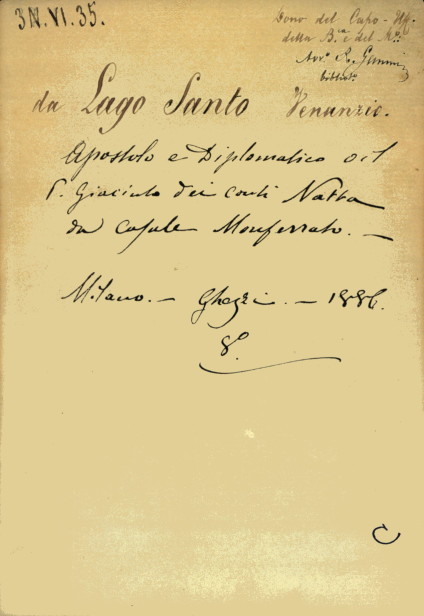 3N.VI.35.
Dono del Capo-
della B.ia e del M.o
bibliot.
da Lago Santo Venanzio.
Apostolo e Diplomatico o il
P. Giacinto dei conti Natta
da Casale Monferrato. —
Milano. — Ghezzi. — 1886.
8.o
C